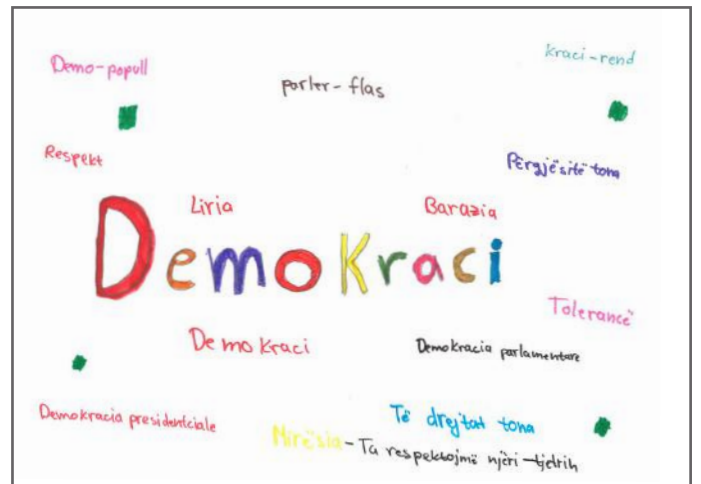 Demo-popull
parler- flas
Kraci-rend
Respekt
Përgjësitë tona
Liria
Barazia
Demokraci
Tolerancë
Demokraci
Demokracia parlamentare
Demokracia presidentciale
Të drejtat tona
Mirësia - Ta respektojmë njëri-tjetrin